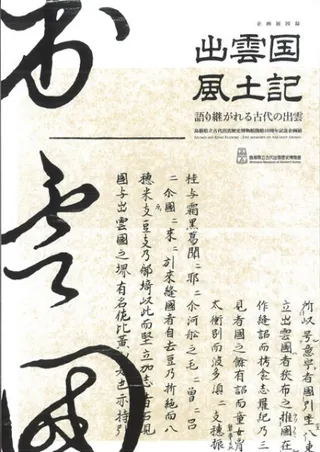 企画展図録
出雲国
風土記
語り継がれる古代の出雲
島根県立古代出雲歴史博物館開館10周年記念企画展
島根県立古代出雲歴史博物館
Shimane Museum of Ancient Izumo
出雲國
所以号意宇者国引坐八束
立出雲國者狭布之推國在
作縫詔而栲衾志羅紀乃三
見者國之餘有詔而童女胷
太衝別而波多須々支穂振
桂与霜黒葛聞々耶々尓河舩之毛々曽々呂
々尓國々来々引来縫國者自去豆乃折絶而八
穂米支豆支乃御埼以此而堅立加志者石見
國与出雲國之堺有名佐比賣山是也亦持引